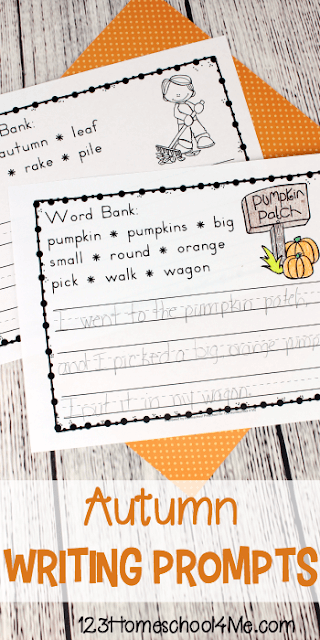 Bank:
autumn * leaf
* rake * pile
Word Bank:
pumpkin * pumpkins * big
small * round * orange
pick * walk * wagon
pumpkin
patch
I went to the pumpkin patch,
and I picked a big orange pump
I put it in my wagon
Autumn
WRITING PROMPTS
123Homeschool4Me.com